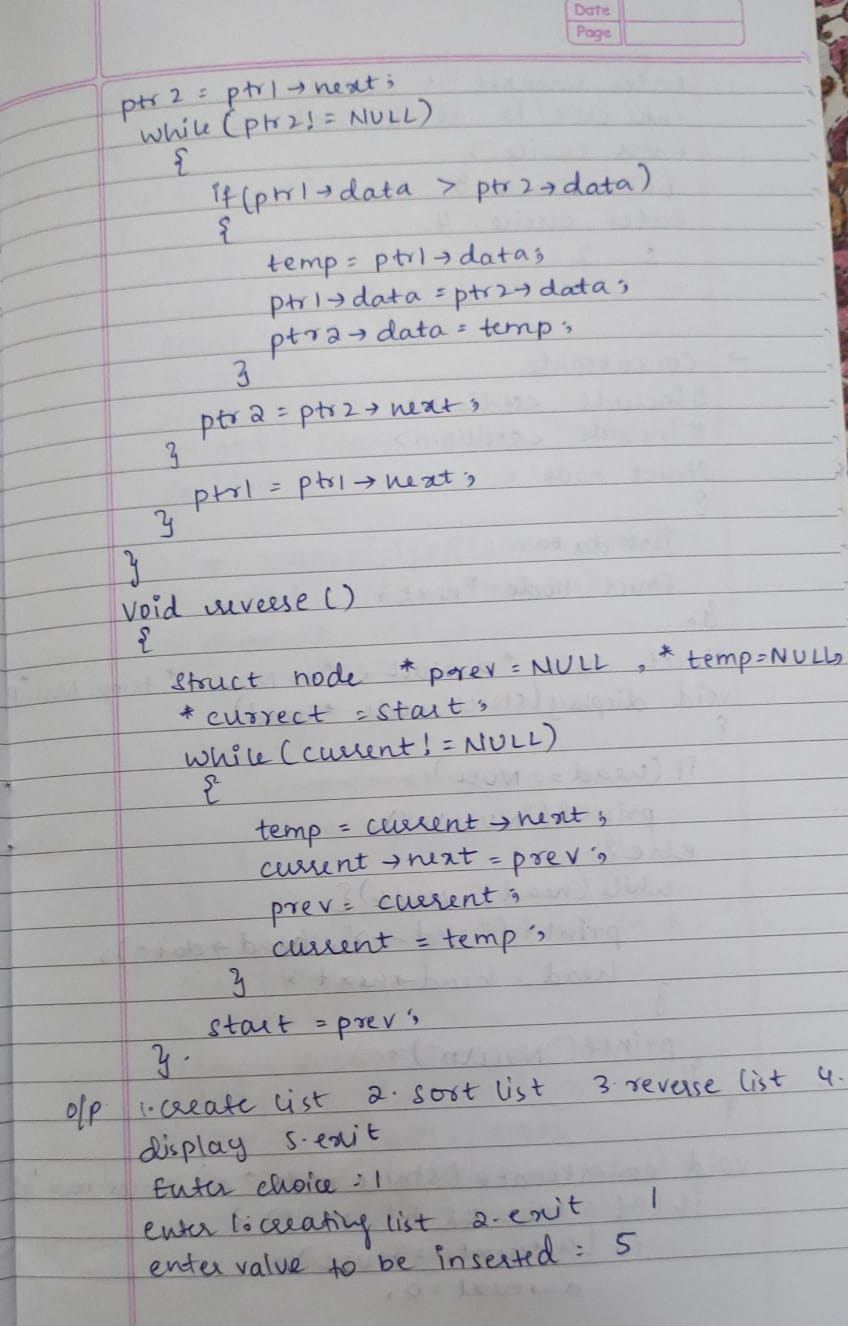 Date
Page
ptr2 = ptr1→next;
while (ptr2! = NULL)
{
if (ptr1→data > ptr2→data)
{
temp = ptr1→data;
ptr1→data = ptr2→data;
ptr2→data = temp;
}
ptr2 = ptr2→next;
}
ptr1 = ptr1→next;
}
}
void reverse ()
{
struct node *prev = NULL, *temp=NULL,
*currect = start;
while (current! = NULL)
{
temp = current→next;
current→next = prev;
prev = current;
current = temp;
}
start = prev;
}.
o/p 1.create list 2. sort list 3. reverse list 4.
display 5.exit
Enter choice : 1
enter 1:creating list 2.exit 1
enter value to be inserted = 5